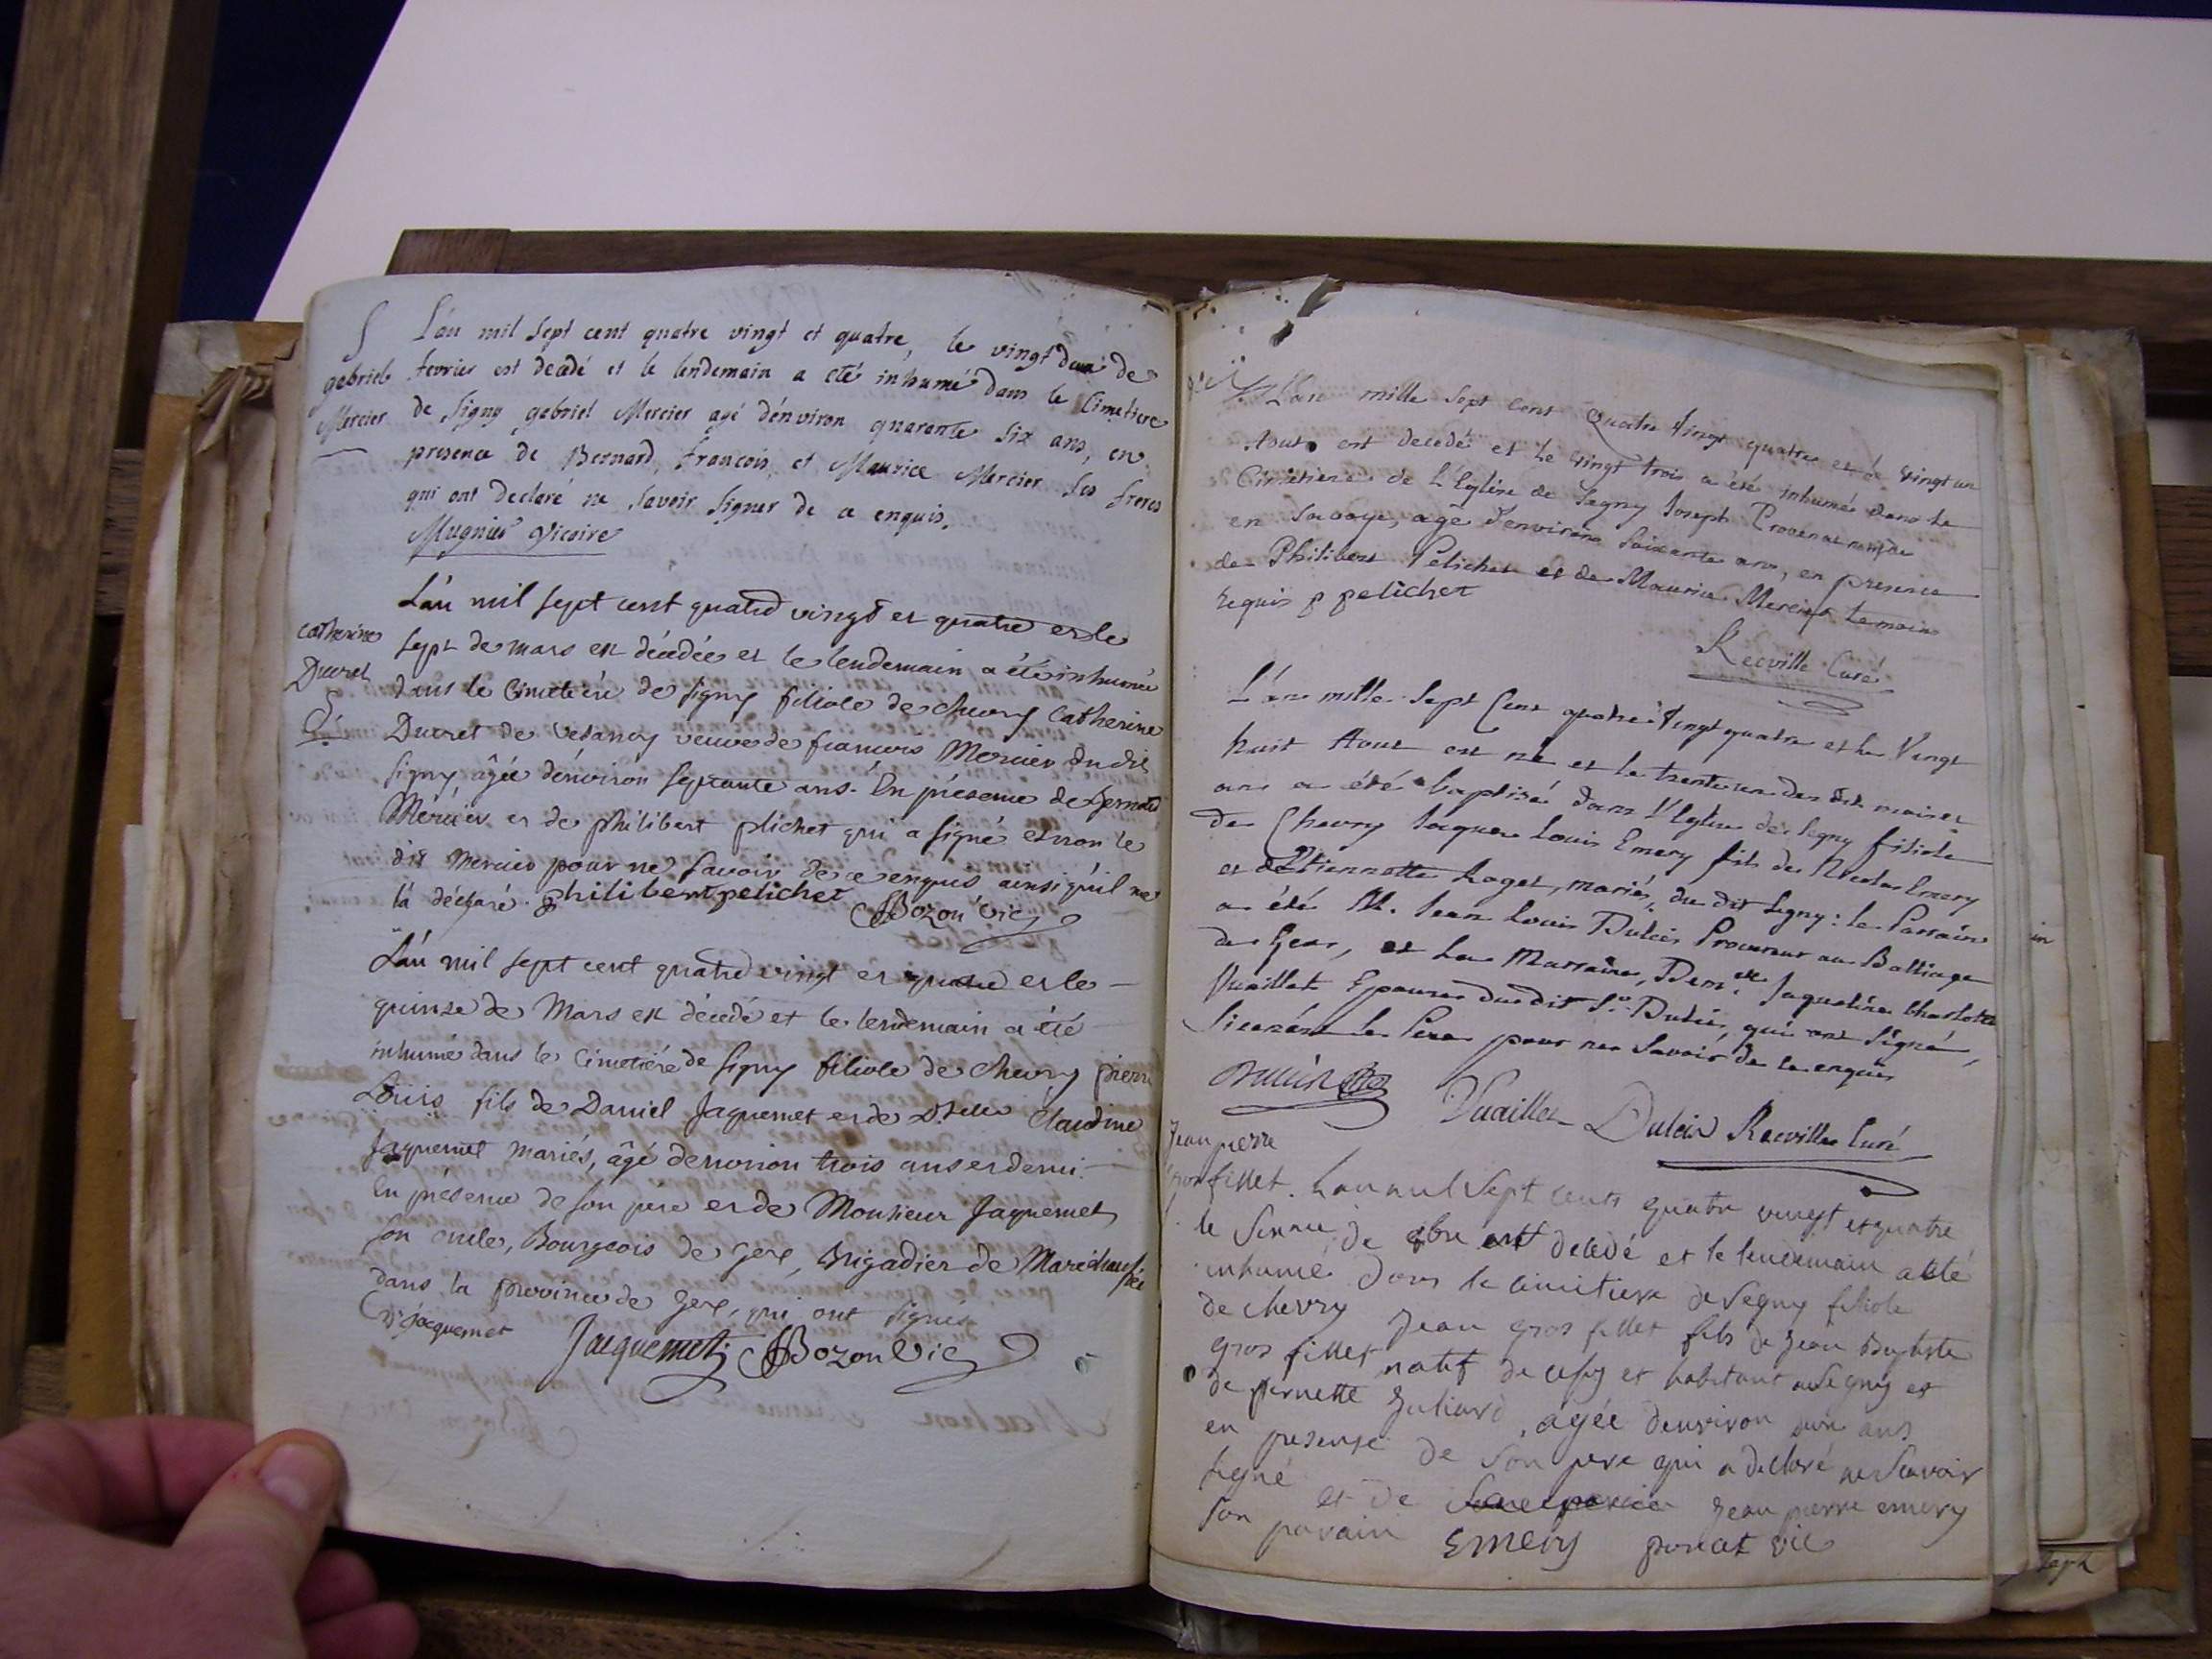 S L'an mil sept cent quatre vingt et quatre, le vingt deux de
gabriel fevrier est decedé et le lendemain a eté inhumé dans le Cimetiere
Mercier de Signy gabriel Mercier agé d'énviron quarante six ans, en
presence de Bernard, francois, et Maurice Mercier ses freres
qui ont declaré ne savoir signer de ce enquis.
Mugnier Vicaire
L'an mil sept cent quatre vingt et quatre et le
catherine sept de mars est décédée et le lendemain a été inhumée
Ducret dans le Cimetiére de signy filiole de chevry Catherine
S. Ducret de Vesancy veuve de francois Mercier du dit
signy âgée d'énviron septante ans. En présence de Bernard
Mércier et de philibert plichet qui a signé et non le
dit mercier pour ne savoir de ce enquis ainsi qu'il me
l'a déclaré. philibert pelichet Bozon Vic
L'an mil sept cent quatre vingt et quatre et le
quinze de Mars est décédé et le lendemain a été
inhumé dans le Cimetiére de signy filiole de chevry pierre
Louis fils de Daniel Jaquemet et de Dselle Claudine
Jaquemet mariés, âgé d'environ trois ans et demi
En présence de son pere et de Monsieur Jaquemet
son oncle, Bourgeois de Gex, Brigadier de Maréchaussée
dans la province de Gex, qui ont signés
D. jaquemet Jacquemet Bozon Vic
L'an mille sept cent Quatre Vingt quatre et le vingt un
Aout est decedé et le vingt trois a été inhumé dans le
Cimetiere de l'Eglise de Segny Joseph natif de
en Savoye, agé d'environ soixante ans, en presence
de Philibert Pelichet et de Maurice Mercier temoins
requis p pelichet
Recville Curé
L'an mille sept Cent quatre Vingt quatre et le Vingt
huit Aout est né et le trente un des dits mois et
an a été baptisé dans l'Eglise de Segny filiole
de Chevry Jaques Louis Emery fils de Nicolas Emery
et d'Etiennette Loget, mariés, du dit Segny: le Parrain
a été M. Jean Louis Dulcis Procureur au Balliage
de Gex, et la Marraine, Demelle Jaqueline Charlotte
Vuaillet Epouse du dit Sr. Dulcis, qui ont signé,
le Pere pour ne savoir de ce enquis
Vuaillet Dulcis Recville Curé
Jean pierre
gros fillet. L'an mil sept cents quatre vingt et quatre
le de est decedé et le lendemain a été
inhumé dans le cimitiere de Segny filiole
de chevry Jean gros fillet fils de Jean Baptiste
gros fillet natif de cessy et habitant a Segny et
de pernette Juliard, agée d'environ ans
en presence de son pere qui a declaré ne scavoir
signé et de Jean pierre emery
son parain Emery ponat vic